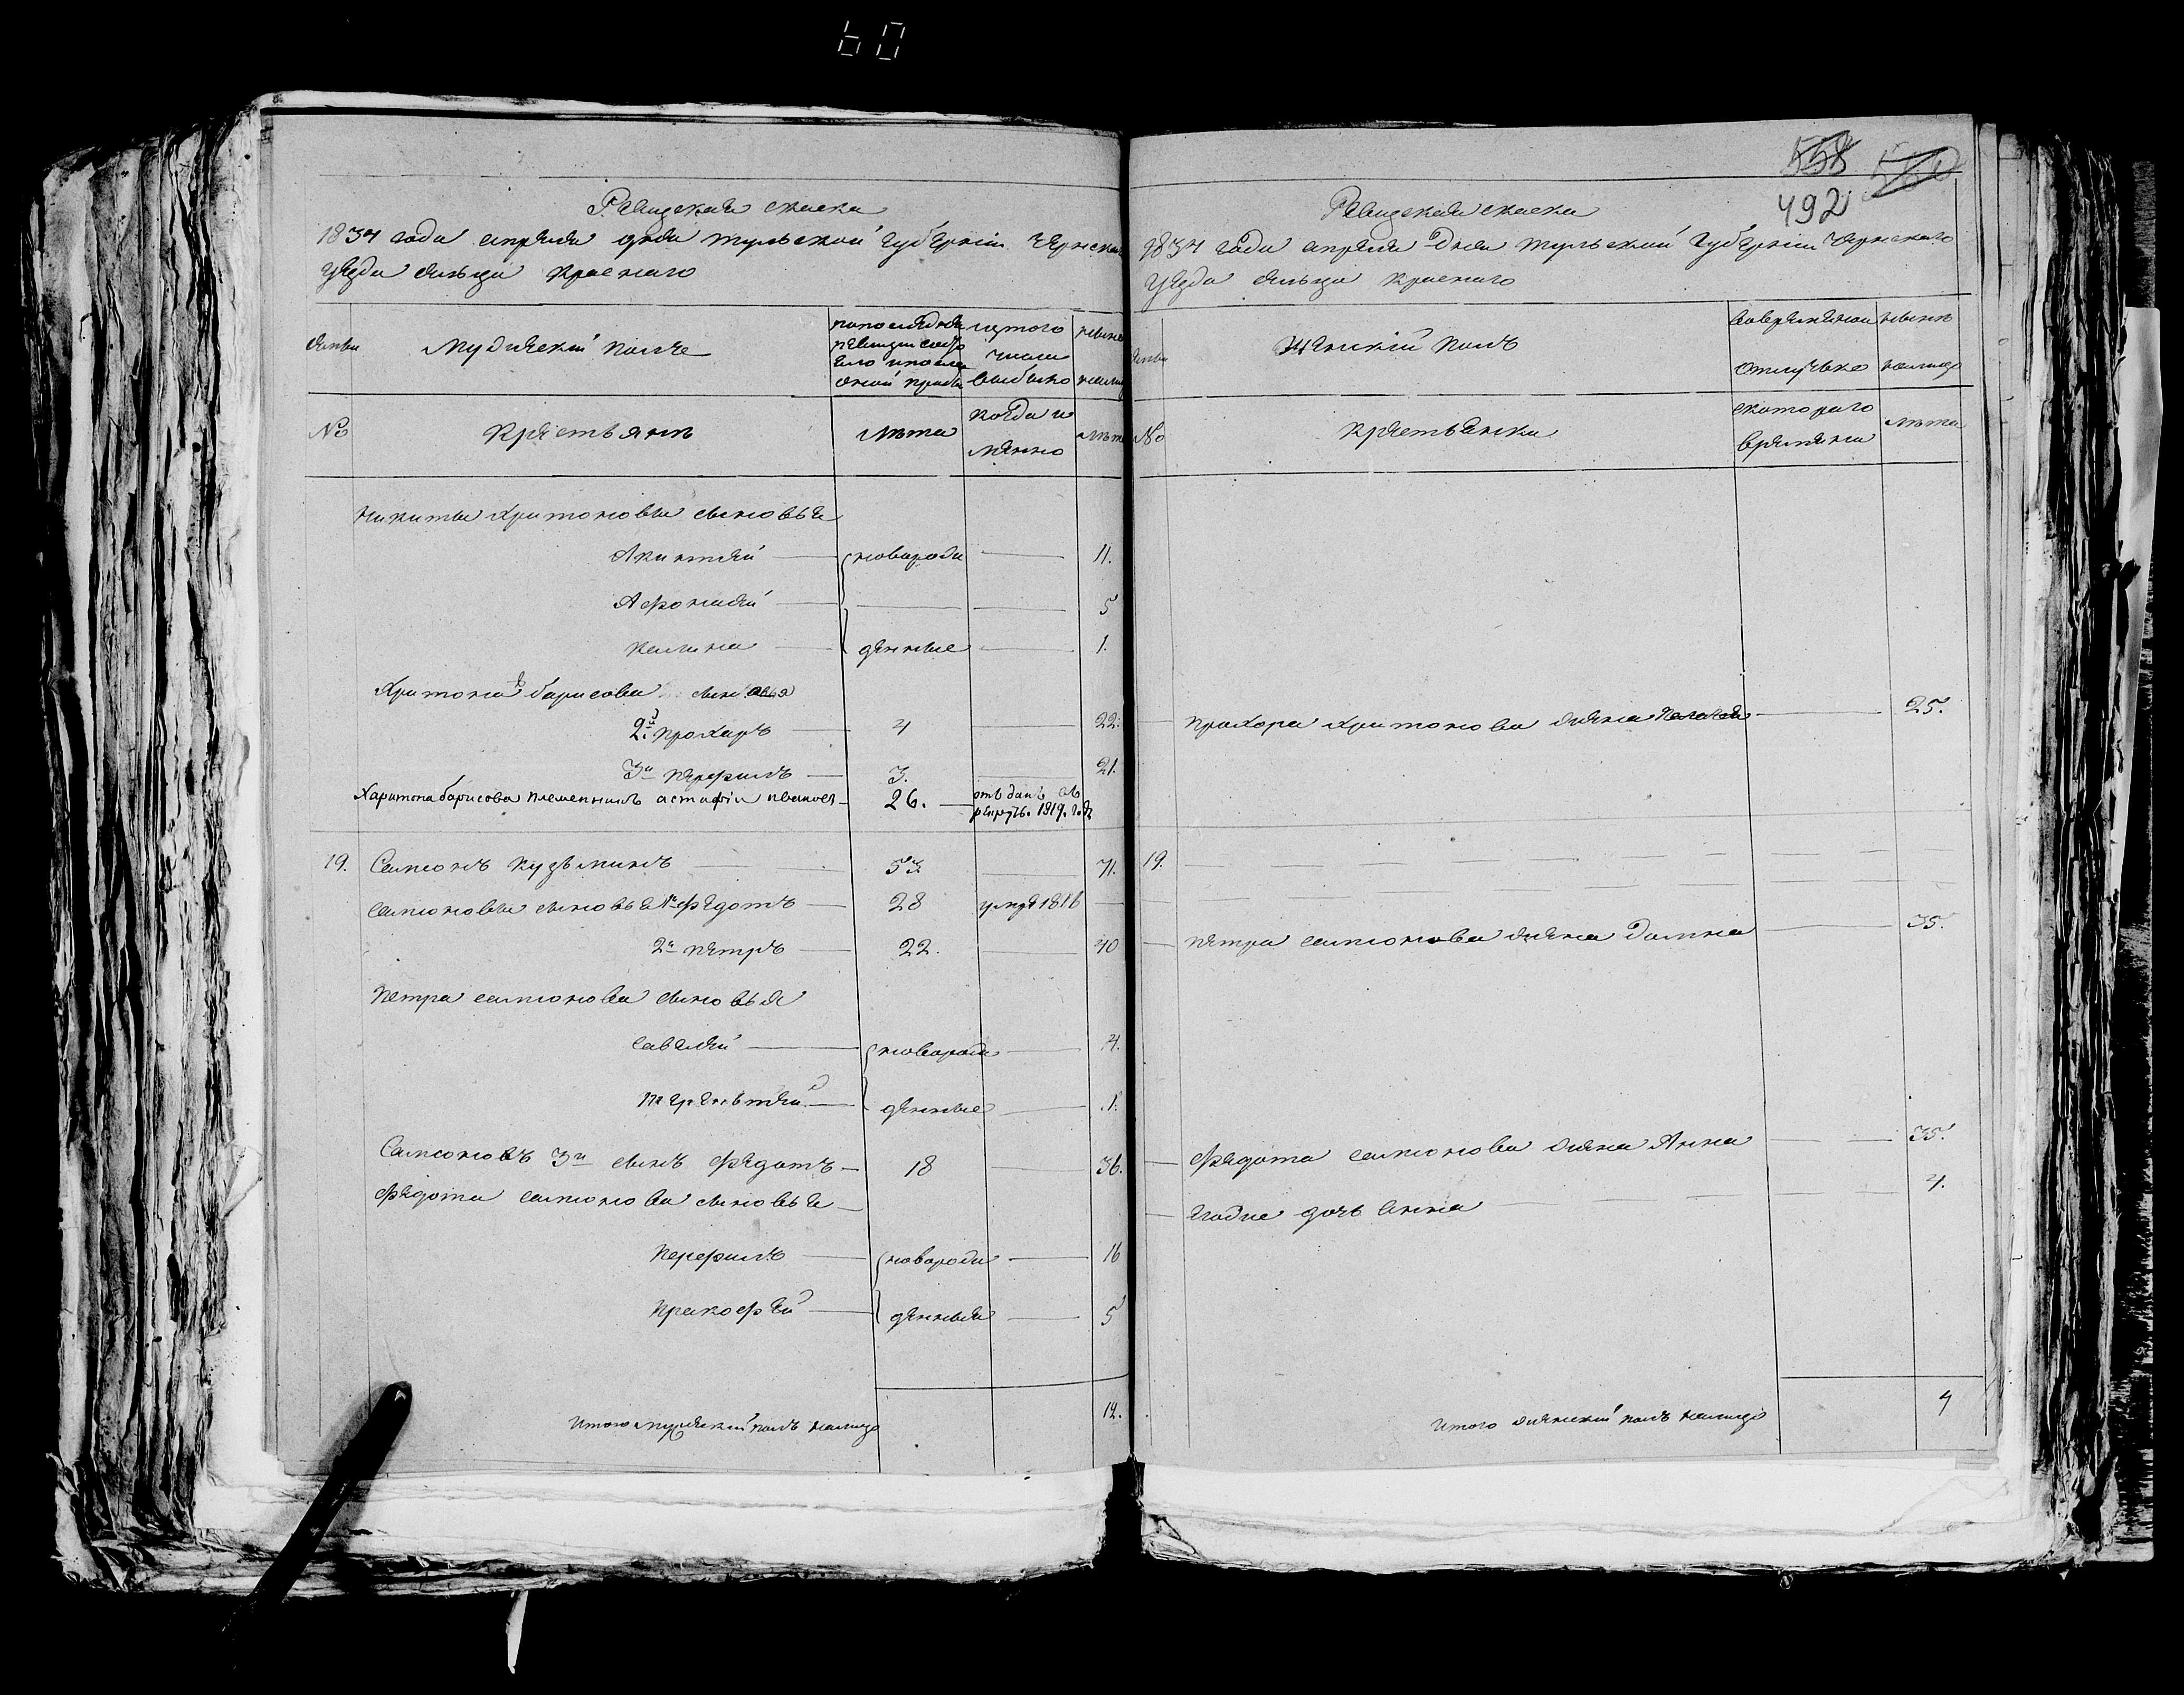 60
Ревизская скаска
1834 года апреля дня тульской губернии чернскаго
уезда сельца краснаго
семьи
Мужеский полъ
по последней ревизии состояло и после оной прибы
ис того числа выбыло
ныне налицо
№
крестьянъ
лета
когда имянно
лета
Никиты Хритоновы сыновья
Акинтей новорож 11.
Афонасей 5
Калина денные 1.
Хритона борисова сыновья
2й прохаръ 4 22.
3й перфилъ 3. 21.
Харитона барисова племенникъ астафiй ивановъ 26. отъ данъ въ рекруты. 1819. году
19. Самсонъ Кузьминъ 53 71.
самсоновы сыновья 1й федотъ 28 умре 1816
2й петръ 22. 40
Петра самсонова сыновья
савелей новорож 4.
терентей денные 1.
Самсоновъ 3й сынъ федотъ 18 36.
федота самсонова сыновья
перфилъ новорож 16
пракофей денныя 5
Итого мужеский полъ налицо 12.
558
492
Ревизская скаска
1834 года апреля дня тульской губернии чернскаго
уезда сельца краснаго
семьи
женский полъ
во временной отлучке
ныне налицо
№
крестьянки
с котораго времяни
лета
прохора хритонова жена 25.
19.
петра самсонова жена домна 35.
федота самсонова жена Анна 35.
дочь анна 4.
Итого женский полъ налицо 4